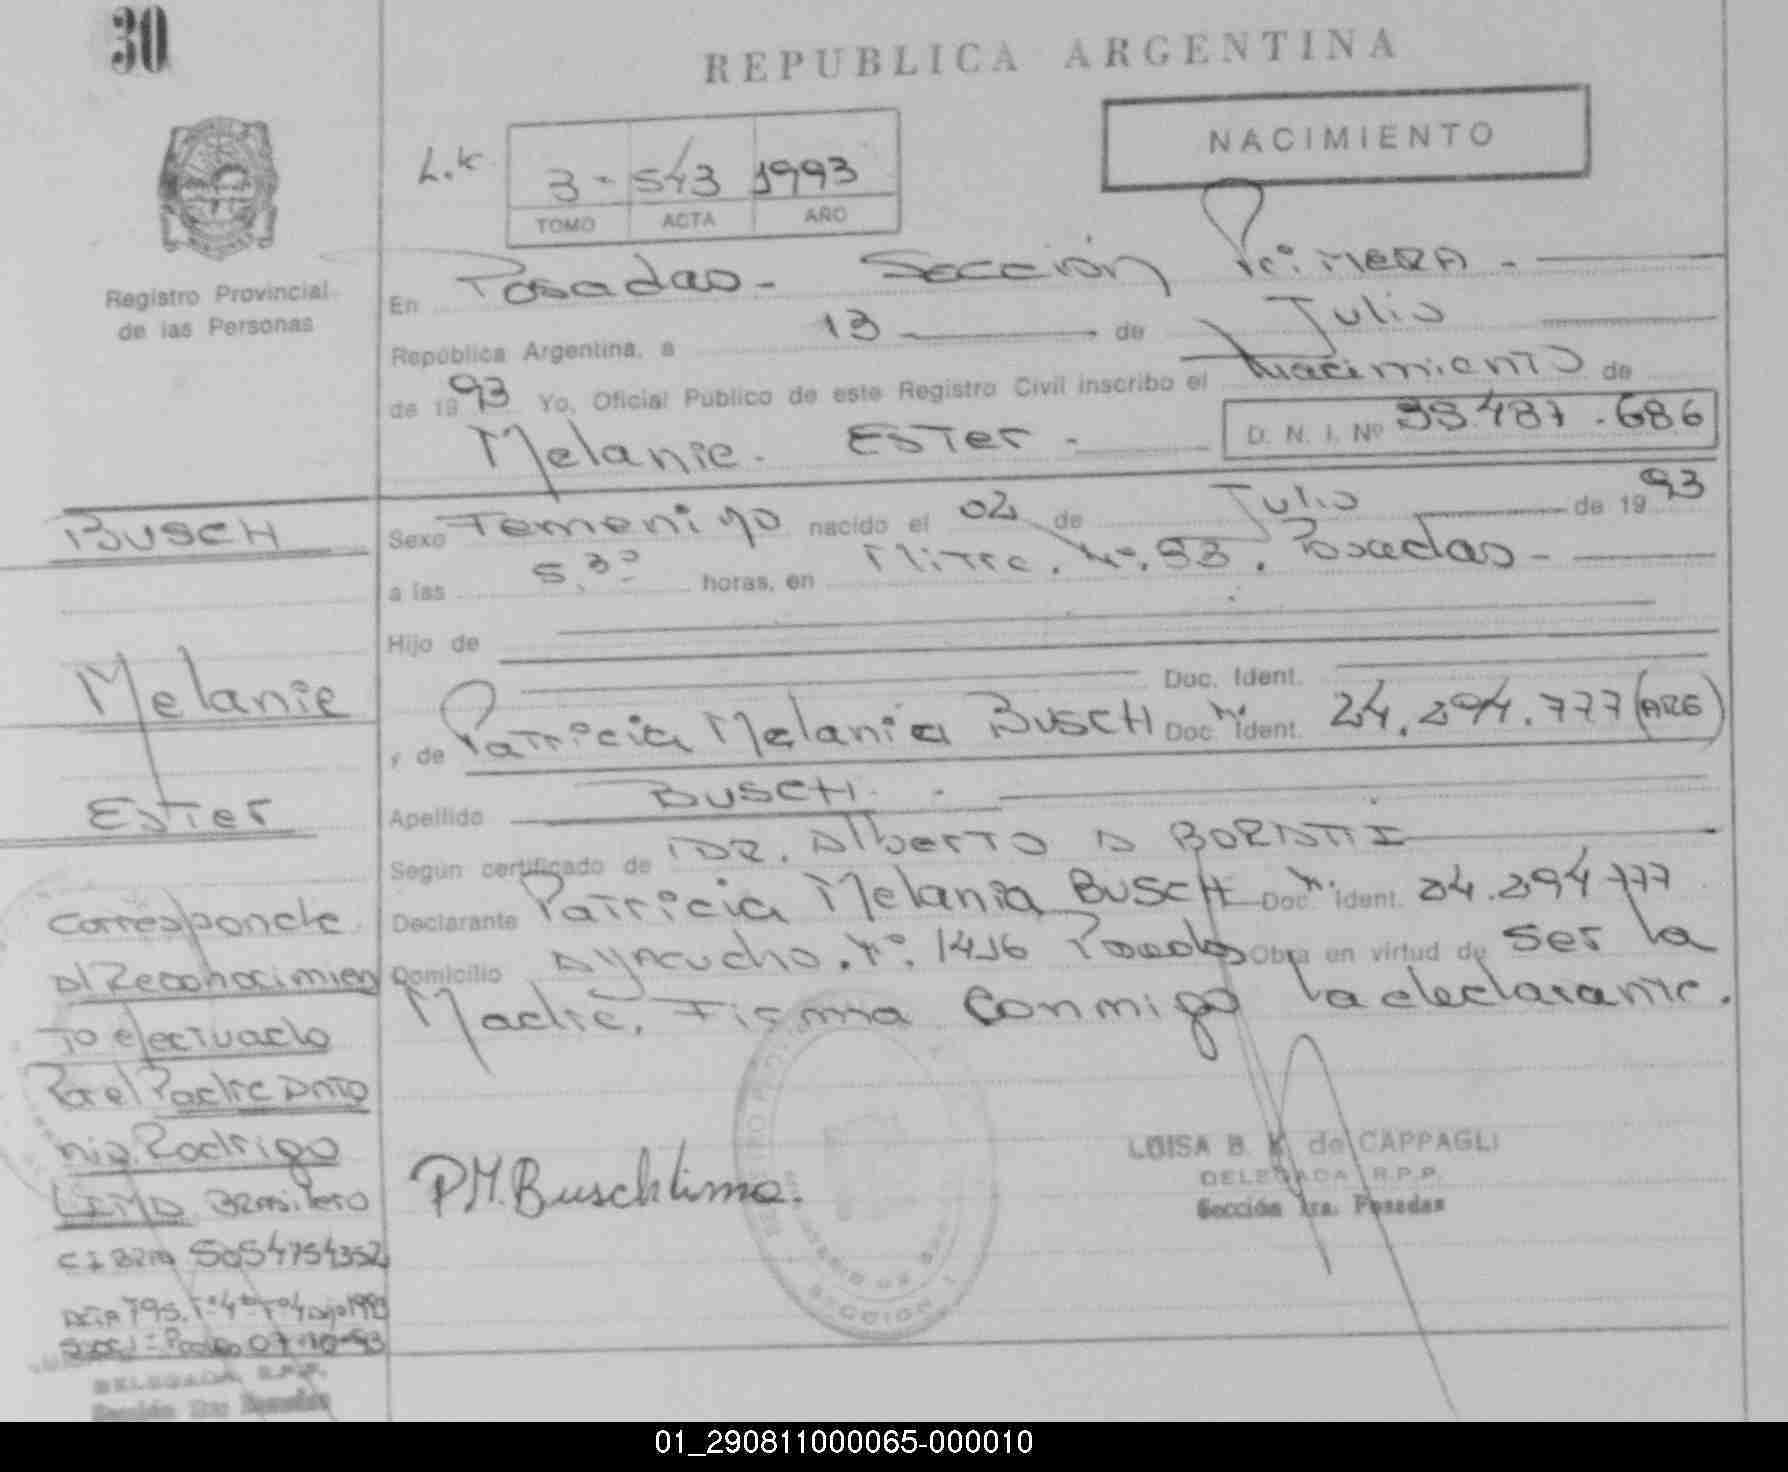 30
REPUBLICA ARGENTINA
NACIMIENTO
L.K
3 - 543 1993
TOMO ACTA AÑO
Registro Provincial
de las Personas
En Posadas - Sección Primera -
República Argentina, a 13 de Julio
de 1993 Yo, Oficial Público de este Registro Civil inscribo el Nacimiento de
Melanie. Ester - D. N. I. Nº .487.686
BUSCH
Sexo Femenino nacido el 02 de Julio de 1993
a las 5,30 horas, en Mitre. Nº. 93. Posadas -
Hijo de
Doc. Ident.
Melanie
y de Patricia Melania BUSCH Doc. Ident. 24.294.777 (ARG)
Ester
Apellido BUSCH -
Según certificado de DR. Alberto A
Declarante Patricia Melania BUSCH Doc. Ident. 24.294.777
Domicilio Ayacucho. Nº. 1416 Posadas Obra en virtud de ser la
Madre. Firma conmigo la declarante.
Corresponde
Al Reconocimien
to efectuado
Por el Padre Anto
nio Rodrigo
LIMA Brasilero
C I BRA 5054754352
Acta 795. Tº 4º 1993
07-10-93
DELEGADA R.P.P.
Sección 1ra. Posadas
P.M. Busch Lima.
LUISA B. K de CAPPAGLI
DELEGADA R.P.P.
Sección 1ra. Posadas
SECCION 1
01_290811000065-000010